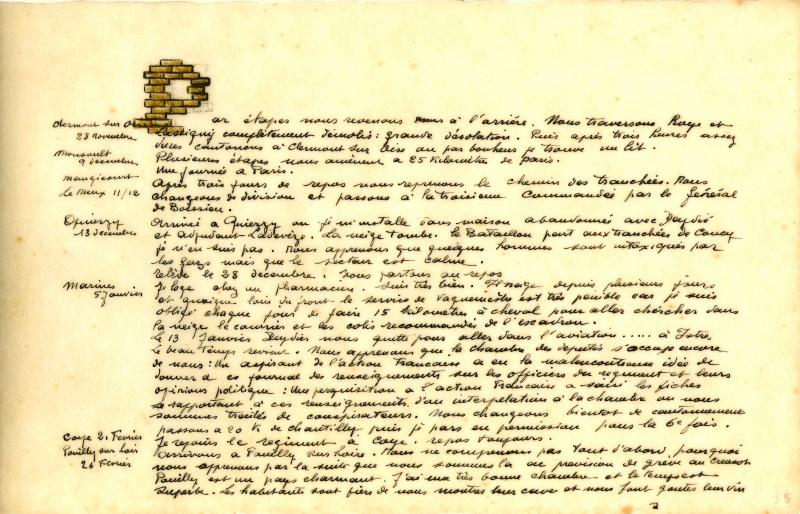 Clermont sur Oise
28 novembre
Par étapes nous revenons à l'arrière. Nous traversons Roye et
Lassigny complètement démolis: grande désolation. Puis après trois heures assez
dures cantonons à Clermont sur Oise ou par bonheur je trouve un lit.
Monsoult
9 décembre
Plusieurs étapes nous amènent à 25 kilomètres de Paris.
Une journée à Paris.
Maugicourt
le Meux 11/12
Après trois jours de repos nous reprenons le chemin des tranchées. Nous
changeons de division et passons à la troisième commandée par le Général
de Boissieu.
Quierzy
13 décembre
Arrivée à Quierzy ou je m'installe dans maison abandonnée avec Deydié
et Adjudant Ladevèze. La neige tombe. le Bataillon part aux tranchées de Coucy
je n'en suis pas. Nous apprenons que quelques hommes sont intoxiqués par
les gazs mais que le secteur est calme.
relève le 28 décembre. Nous partons au repos
Marines
5 Janvier
Je loge chez un pharmacien. Suis très bien. Il neige depuis plusieurs jours
et quoique loin du front le service de Vaguemestre est très pénible car je suis
obligé chaque jour de faire 15 kilomètres à cheval pour aller chercher dans
la neige le courrier et les colis recommandés de l'escadron.
Le 13 Janvier Deydiés nous quitte pour aller dans l'aviation ..... à Istres
Le beau temps revient. Nous apprenons que la chambre des députés s'occupe encore
de nous: Un aspirant de l'action Francaise a eu la malencontreuse idée de
donner à ce journal des renseignements sur les officiers du regiment et leurs
opinions politique: Une perquisition à l'action Francaise a saisi les fiches
se rapportant à ces renseignements d'ou interpelation à la chambre ou nous
sommes traités de conspirateurs. Nous changeons bientot de cantonnement
passons à 20 K de Chantilly puis je pars en permission pour la 6e fois.
Coye 21 Février
Je rejoins le regiment à Coye. repos toujours.
Pouilly sur Loire
26 Février
Arrivons à Pouilly sur Loire. Nous ne comprenons pas tout d'abord pourquoi
nous apprenons par la suite que nous sommes là en prevision de grève au Creusot
Pouilly est un pays charmant. J'ai une très bonne chambre et le temps est
superbe. Les habitants sont fiers de nous montrer leur cave et nous font gouter leur vin